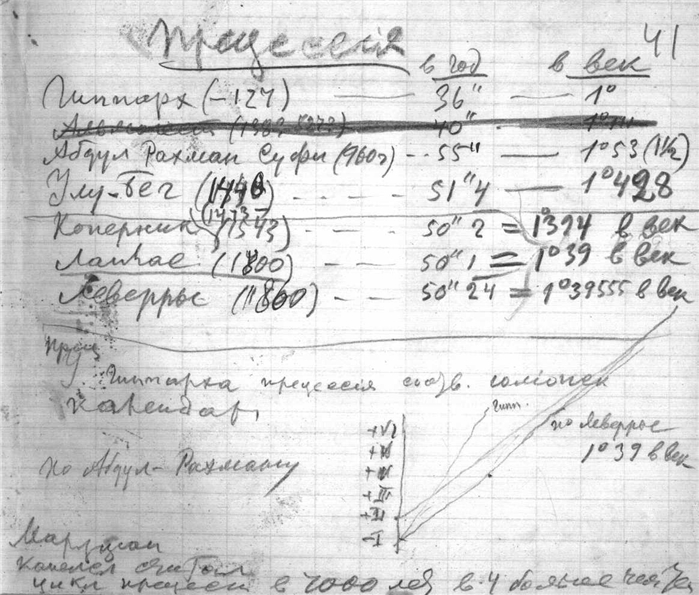 41
Прецессия
в год в век
Гиппарх (-127) — 36" — 1°
40"
Абдул Рахман Суфи (960г) -- 55" — 1°53 (1½)
Улу-Бег (1440) - - - 51"4 — 1°428
(1473-
Коперник (1543) - - - 50"2 = 1°394 в век
Лаплас (1800) - - - 50"1 = 1°39 в век
Леверрье (1860) - - - 50"24 = 1°39555 в век
У Гиппарха прецессия соотв. юлианск
календарь
Гипп.
по Леверрье
1°39 в век
по Абдул-Рахману
+III
+II
-I
считал
цикл прецессии в 7000 лет в 4 больше чем